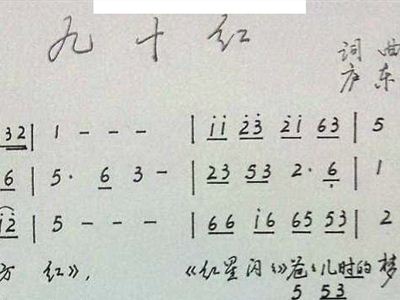 九十红
词 曲
东
32 | 1 - - - | i̇i̇ 2̇3̇ 2̇i̇ 63 | 5
6 | 5· 6 3 - | 23 53 2· 6̣ | 1
i̇2̇ | 5 - - - | 66 i̇6 65 53 | 2
红》， 《红星闪》 儿时的梦
5 53